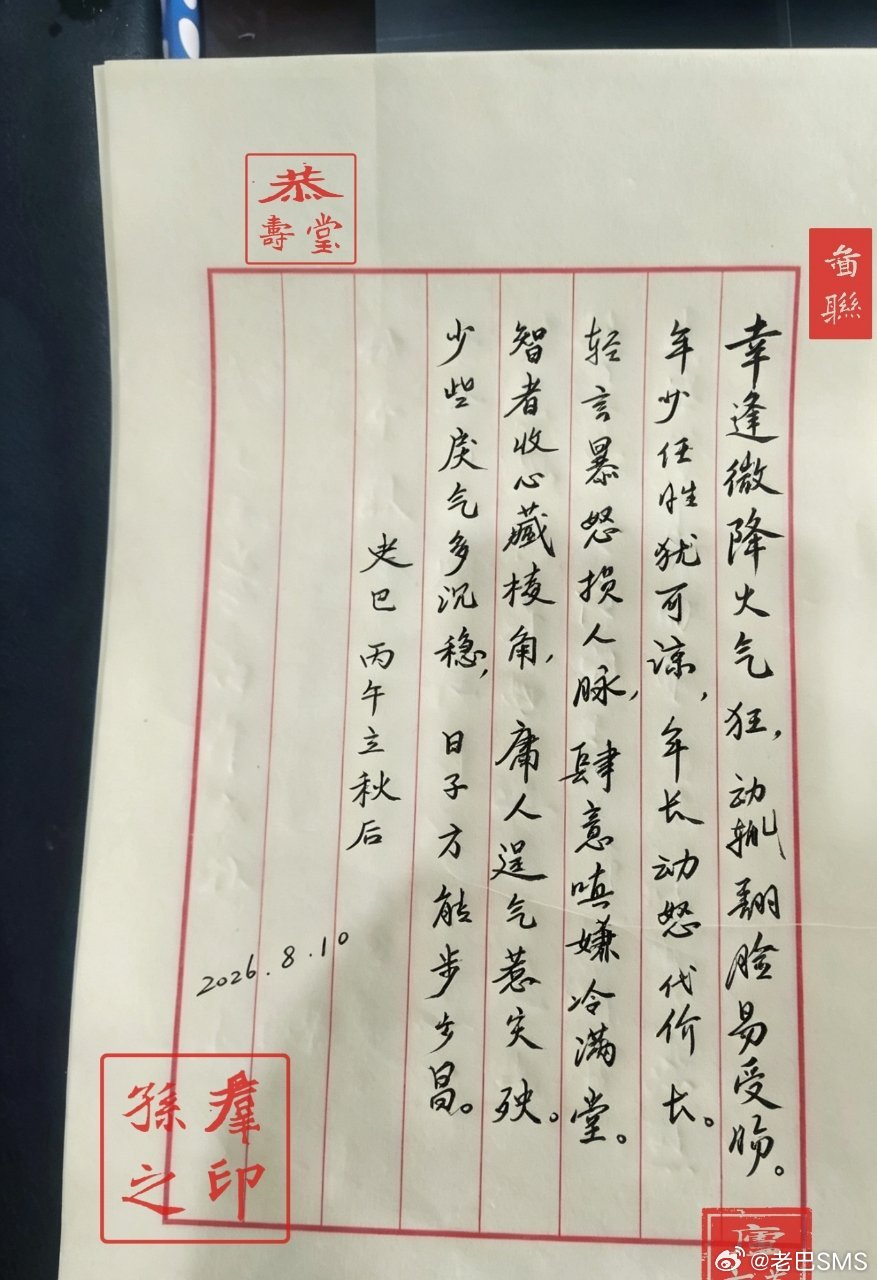 幸逢微降火气狂，动辄翻脸易受伤。
年少任性犹可谅，年长动怒代价长。
轻言暴怒损人脉，肆意嗔嫌冷满堂。
智者收心藏棱角，庸人逞气惹灾殃。
少些戾气多沉稳，日子方能步步昌。
老巴 丙午立秋后
2026.8.10
恭
壽堂
聯
孫羣
之印
@老巴SMS